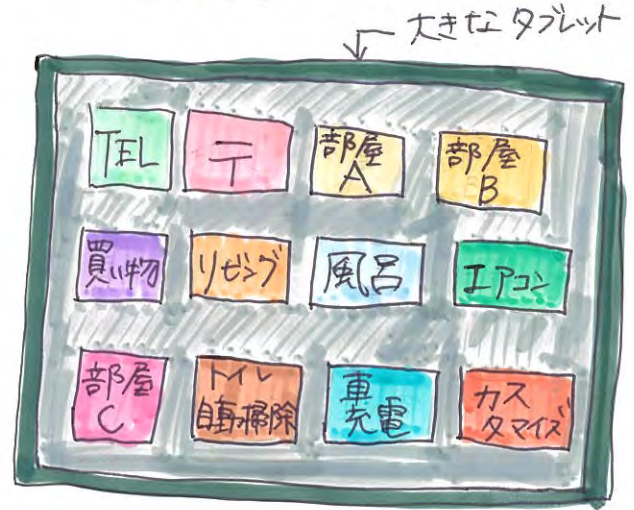 大きなタブレット
TEL
〒
部屋
A
部屋
B
買い物
リビング
風呂
エアコン
部屋
C
トイレ
自動掃除
車
充電
カス
タマイズ